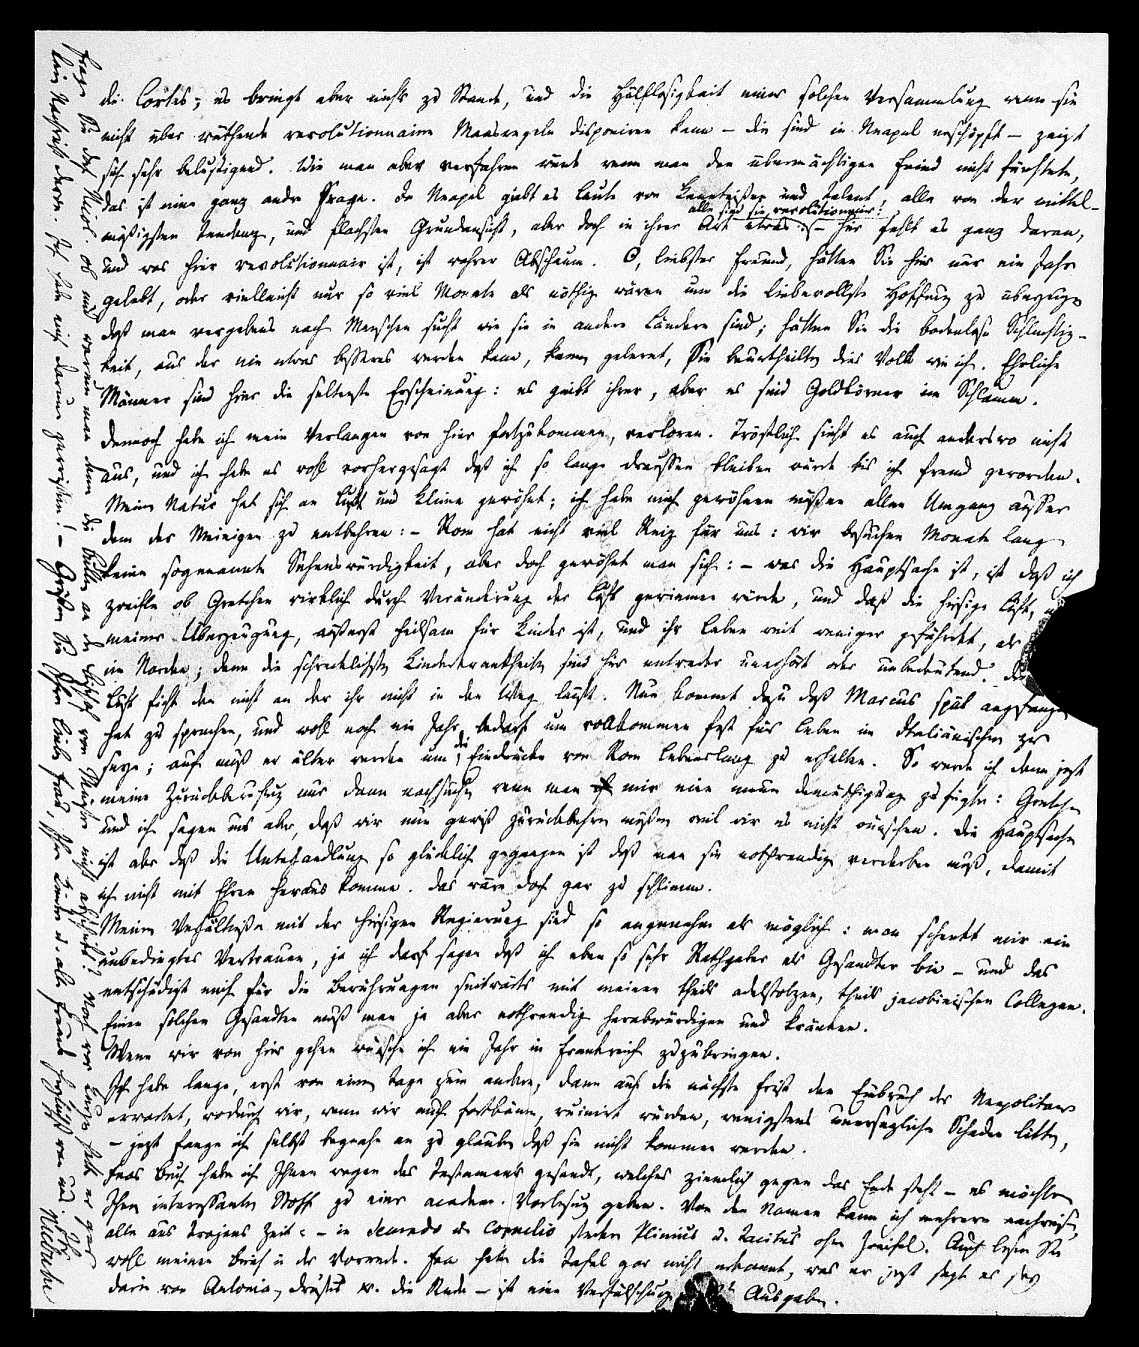 die Cortes; es bringt aber nichts zu Stande, und die Hülflosigkeit einer solchen Versammlung wenn sie
nicht über wüthende revolutionnaire Maasregeln disponiren kann – die sind in Neapel erschöpft – zeigt
sich sehr belustigend. Wie man aber verfahren würde wenn man den übermächtigen Feind nicht fürchtete,
das ist eine ganz andre Frage. In Neapel giebt es Leute von Kenntnissen und Talent, alle von der mittel-
alle sind sie revolutionnair:
mäßigsten Tendenz, und flachsten Grundansicht, aber doch in ihrer Art etwas: – hier fehlt es ganz daran,
und was hier revolutionnair ist, ist wahrer Abschaum. O, liebster Freund, hätten Sie hier nur ein Jahr
gelebt, oder vielleicht nur so viel Monate als nöthig wären um die liebevollste Hoffnung zu überzeugen
daß man vergebens nach Menschen sucht wie sie in andern Ländern sind; hätten Sie die bodenlose Schlechtig-
keit, aus der nie etwas besseres werden kann, kennen gelernt, Sie beurtheilten dies Volk wie ich. Ehrliche
Männer sind hier die seltenste Erscheinung: es giebt ihrer, aber es sind Goldkörner im Schlamm.
Dennoch habe ich mein Verlangen von hier fortzukommen, verloren. Tröstlich sieht es auch anderswo nicht
aus, und ich habe es wohl vorhergesagt daß ich so lange draussen bleiben würde bis ich fremd geworden.
Meine Natur hat sich an Luft und Klima gewöhnt; ich habe mich gewöhnen müßen allen Umgang ausser
dem der Meinigen zu entbehren: – Rom hat nicht viel Reiz für uns: wir besuchen Monate lang
keine sogenannte Sehenswürdigkeit, aber doch gewöhnt man sich: – was die Hauptsache ist, ist daß ich
zweifle ob Gretchen wirklich durch Veränderung der Luft gewinnen würde, und daß die hiesige Luft,
meiner Überzeugung, äußerst heilsam für Kinder ist, und ihr Leben weit weniger gefährdet, als
im Norden; denn die schrecklichsten Kinderkrankheiten sind hier entweder unerhört oder unbedeutend.
Luft ficht den nicht an der ihr nicht in den Weg läuft. Nun kommt dazu daß Marcus spät angefangen
hat zu sprechen, und wohl noch ein Jahr bedarf um vollkommen fest fürs Leben im Italiänischen zu
seyn; auch muß er älter werden um die Eindrücke von Rom lebenslang zu erhalten. So werde ich denn jezt
meine Zurückberufung nur dann nachsuchen wenn man mir eine neue Demüthigung zufügte: Gretchen
und ich sagen uns aber, daß wir nun gewiß zurückkehren müßen weil wir es nicht wünschen. Die Hauptsache
ist aber daß die Unterhandlung so glücklich gegangen ist daß man sie nothwendig verderben muß, damit
ich nicht mit Ehren heraus komme. Das wäre doch gar zu schlimm.
Meine Verhältnisse mit der hiesigen Regierung sind so angenehm als möglich: man schenkt mir ein
unbedingtes Vertrauen, ja ich darf sagen daß ich eben so sehr Rathgeber als Gesandter bin – und das
entschädigt mich für die Berührungen seitwärts mit meinen theils adelstolzen, theils jacobinischen Collegen.
Einen solchen Gesandten muß man ja aber nothwendig herabwürdigen und kränken.
Wenn wir von hier gehen wünsche ich ein Jahr in Frankreich zuzubringen.
Ich habe lange, erst von einem Tage zum andern, dann auf die nächste Frist den Einbruch der Neapolitaner
erwartet, wodurch wir, wenn wir auch fortkämen, ruinirt würden, wenigstens unersezlichen Schaden litten,
– jezt fange ich selbst beynahe an zu glauben daß sie nicht kommen werden.
Feas Buch habe ich Ihnen wegen des Testaments gesandt, welches ziemlich gegen das Ende steht – es möchte
Ihnen interessanten Stoff zu einer academ. Vorlesung geben. Von den Namen kann ich mehrere nachweisen
alle aus Trajans Zeit: – in Secundo u. Cornelio stecken Plinius u. Tacitus ohne Zweifel. Auch lesen Sie
wohl meinen Brief in der Vorrede. Fea hatte die Tafel gar nicht erkannt, was er jezt sagt es sey
darin von Antonia, Drusus pp. die Rede – ist eine Verfälschung Ausgabe.
Fragen Sie doch Nicol. ob und warum man denn die Bullen an den Bischof von Münster nicht abschickt?
kein Nachricht davon. Ich habe mich darum gerissen! – Grüßen Sie Ihre liebe Frau, Ihre Kinder u. alle Freunde herzlichst von uns. Ihr
Niebuhr